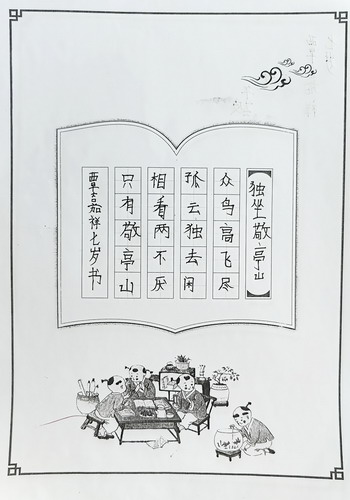 独坐敬亭山
众鸟高飞尽
孤云独去闲
相看两不厌
只有敬亭山
覃嘉祥七岁书